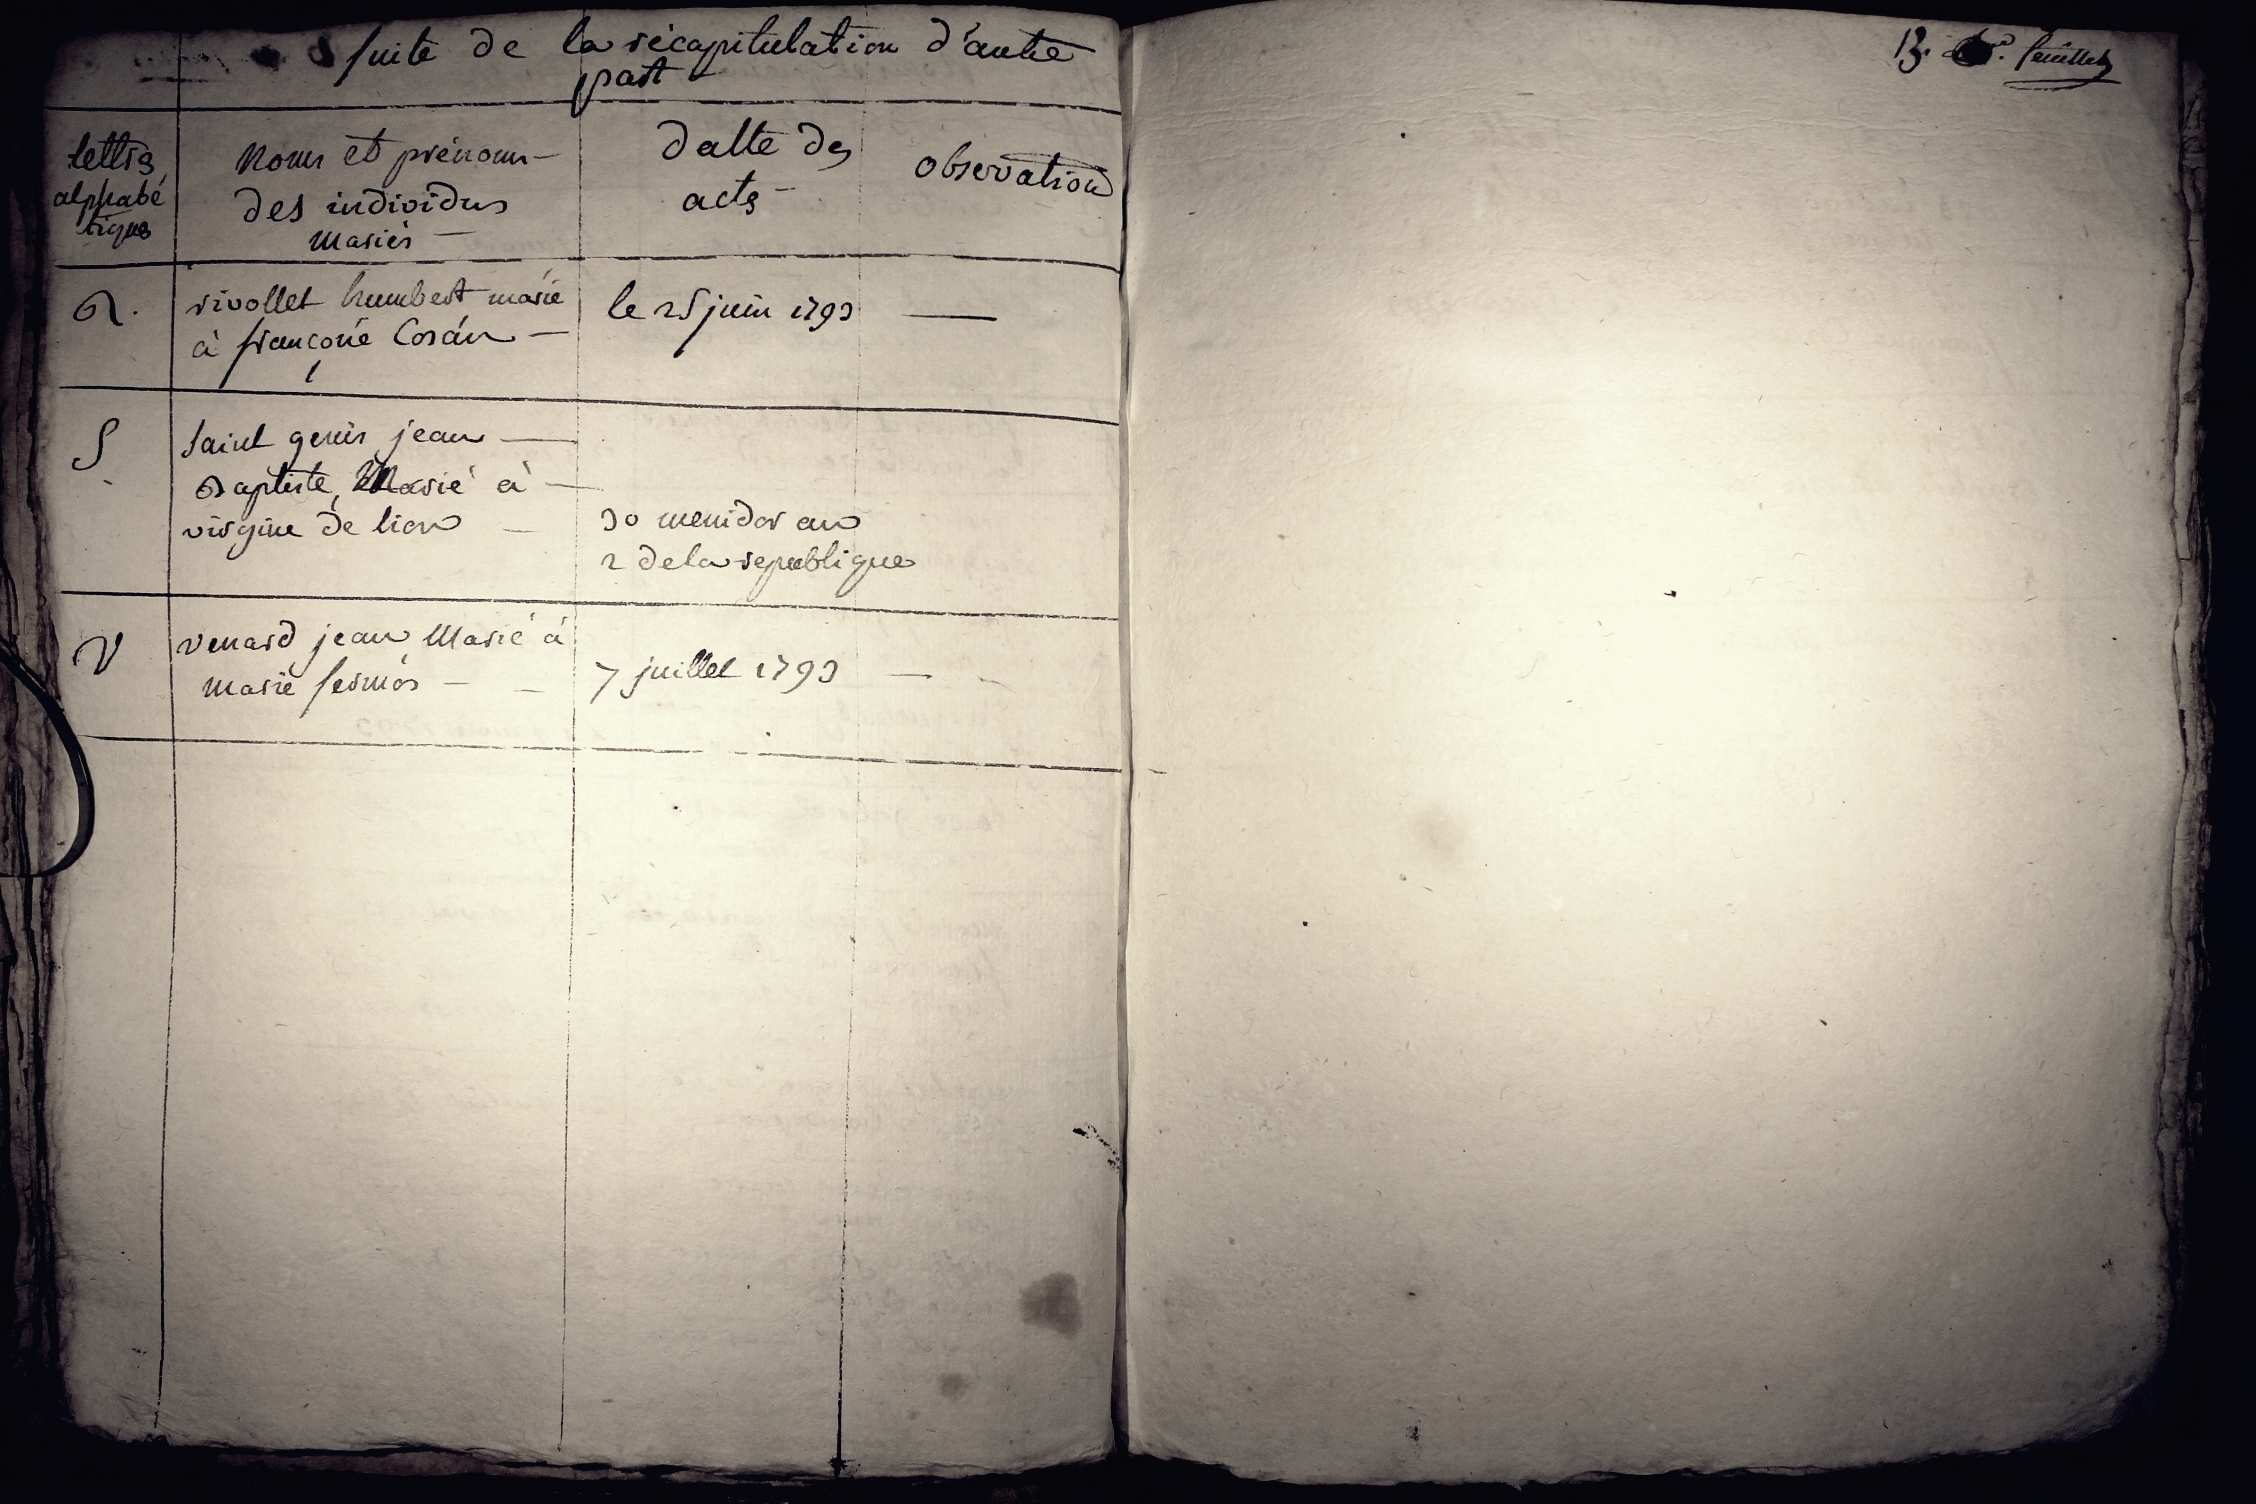 suite de la récapitulation d'autre
part
lettres
alphabé
tiques
noms et prénoms
des individus
mariés
datte des
actes
observation
R.
rivollet humbert marié
à françoise Coran
le 25 juin 1793
S
saint genis jean
Baptiste, Marié à
virgine de lion
30 mesidor an
2 de la republique
V
venard jean Marié à
marie
7 juillet 1793
13. feuillet